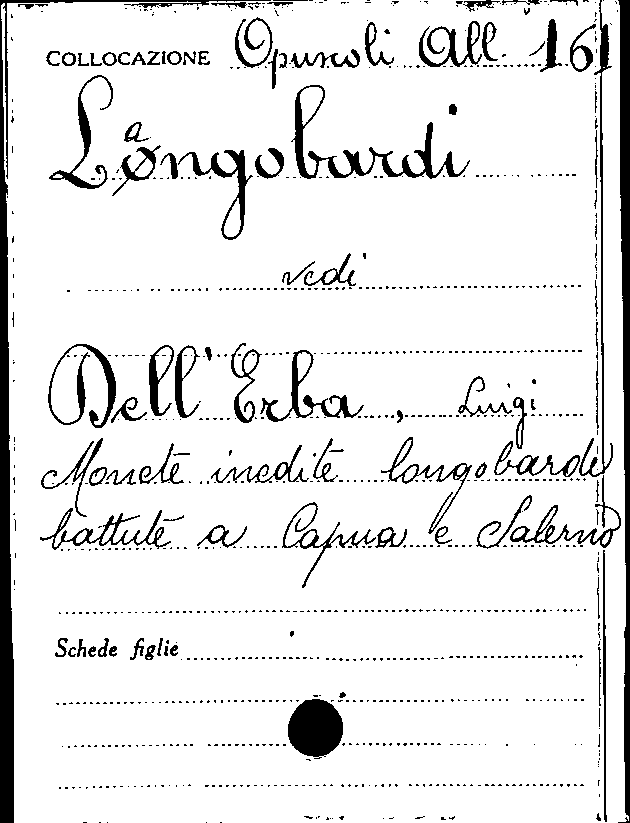 COLLOCAZIONE Opuscoli All. 161
Langobardi
vedi
Dell'Erba, Luigi
Monete inedite longobarde
battute a Capua e Salerno
Schede figlie